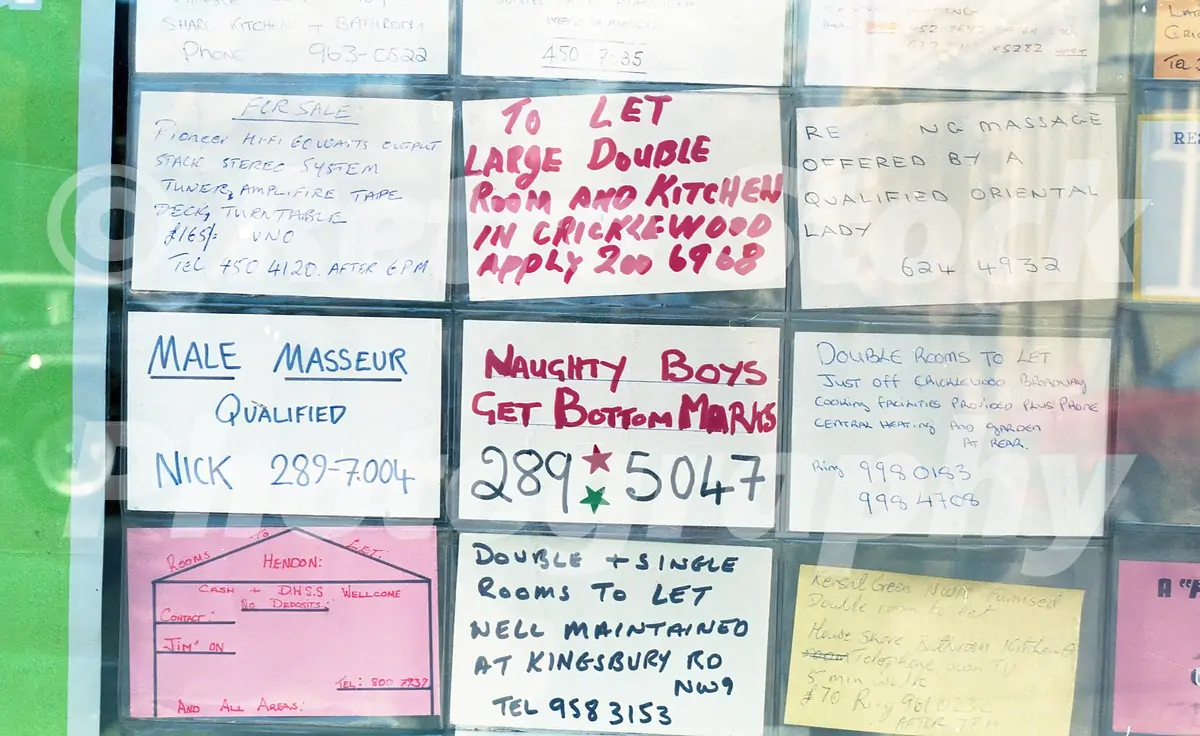 SHARE KITCHEN + BATHROOM
PHONE 963-0522
450 7535
FOR SALE:
Pioneer HIFI 60 WAITS OUTPUT
STACK STEREO SYSTEM
TUNER, AMPLIFIRE TAPE
DECK, TURNTABLE
£165/- VNO
TEL 450 4120. AFTER 6PM.
TO LET
LARGE DOUBLE
ROOM AND KITCHEN
IN CRICKLEWOOD
APPLY 200 6968
RE NG MASSAGE
OFFERED BY A
QUALIFIED ORIENTAL
LADY
624 4932
MALE MASSEUR
QUALIFIED
NICK 289-7004
NAUGHTY BOYS
GET BOTTOM MARKS
289 5047
DOUBLE ROOMS TO LET
JUST OFF CRICKLEWOOD BROADWAY
COOKING FACILITIES PROVIDED PLUS PHONE
CENTRAL HEATING AND GARDEN
AT REAR.
Ring 998 0183
998 4708
ROOMS TO LET
HENDON:
CASH + D.H.S.S WELLCOME
NO DEPOSITS:
CONTACT:
"JIM" ON
TEL: 800 7937
AND ALL AREAS:
DOUBLE + SINGLE
ROOMS TO LET
WELL MAINTAINED
AT KINGSBURY RD
NW9
TEL 958 3153
Kensal Green NW10 Furnised
Double room to let
House share Bathroom Kitchen
Telephone own TV
5 min walk
£70 Ring
AFTER 7PM
Photography